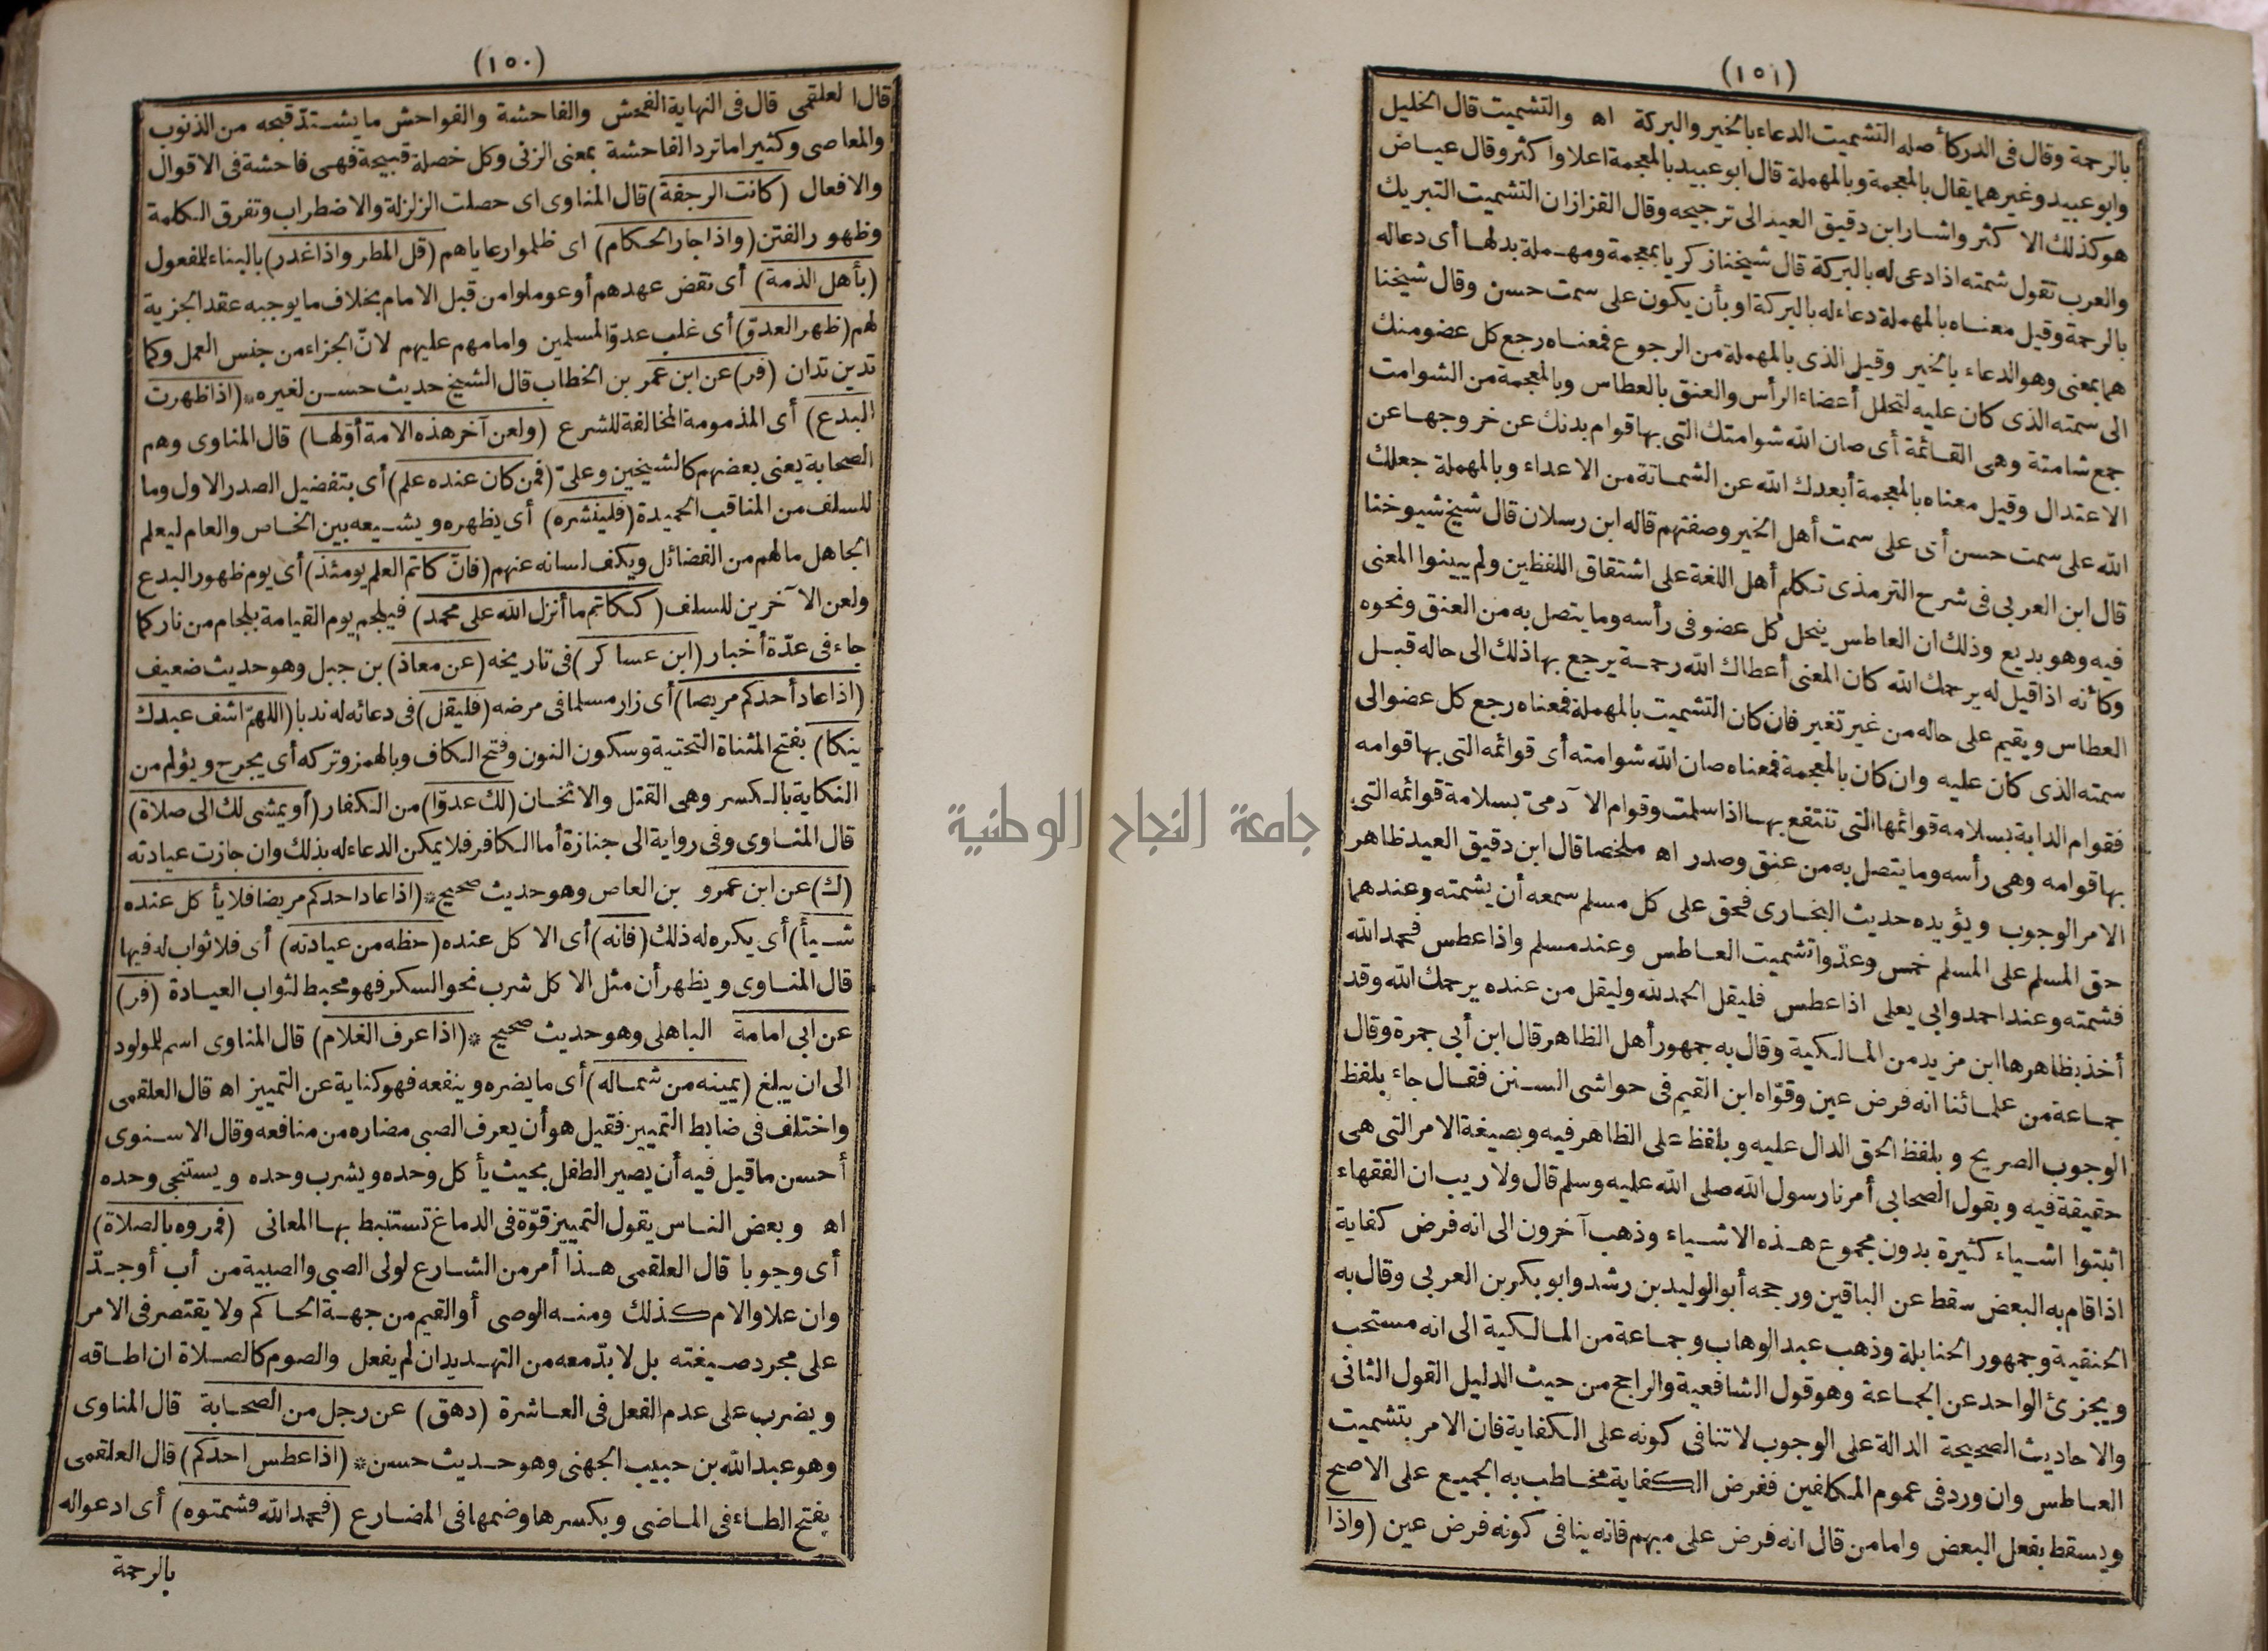 (١٥٠)
قال العلقمى قال فى النهاية الفحش والفاحشة والفواحش ما يشتدّ قبحه من الذنوب
والمعاصى وكثيرا ما ترد الفاحشة بمعنى الزنى وكل خصلة قبيحة فهى فاحشة فى الاقوال
والافعال (كانت الرجفة) قال المناوى اى حصلت الزلزلة والاضطراب وتفرق الكلمة
وظهور الفتن (واذا جار الحكام) اى ظلموا رعاياهم (قل المطر واذا غدر) بالبناء للمفعول
(بأهل الذمة) أى نقض عهدهم أو عوملوا من قبل الامام بخلاف ما يوجبه عقد الجزية
لهم (ظهر العدوّ) أى غلب عدوّ المسلمين وامامهم عليهم لانّ الجزاء من جنس العمل وكما
تدين تدان (فر) عن ابن عمر بن الخطاب قال الشيخ حديث حسن لغيره * (اذا ظهرت
البدع) أى المذمومة المخالفة للشرع (ولعن آخر هذه الامة أوّلها) قال المناوى وهم
الصحابة يعنى بعضهم كالشيخين وعلىّ (فمن كان عنده علم) أى بتفضيل الصدر الاول وما
للسلف من المناقب الحميدة (فلينشره) أى يظهره ويشيعه بين الخاص والعام ليعلم
الجاهل ما لهم من الفضائل ويكف لسانه عنهم (فانّ كاتم العلم يومئذ) أى يوم ظهور البدع
ولعن الآخرين للسلف (ككاتم ما أنزل الله على محمد) فيلجم يوم القيامة بلجام من نار كما
جاء فى عدّة أخبار (ابن عساكر) فى تاريخه (عن معاذ) بن جبل وهو حديث ضعيف
(اذا عاد أحدكم مريضا) أى زار مسلما فى مرضه (فليقل) فى دعائه له ندبا (اللهمّ اشف عبدك
ينكأ) بفتح المثناة التحتية وسكون النون وفتح الكاف وبالهمز وتركه أى يجرح ويؤلم من
النكاية بالكسر وهى القتل والاثخان (لك عدوّا) من الكفار (أو يمشى لك الى صلاة)
قال المناوى وفى رواية الى جنازة أما الكافر فلا يمكن الدعاء له بذلك وان جازت عيادته
(ك) عن ابن عمرو بن العاص وهو حديث صحيح * (اذا عاد احدكم مريضا فلا يأكل عنده
شيأ) أى يكره له ذلك (فانه) أى الاكل عنده (حظه من عيادته) أى فلا ثواب له فيها
قال المناوى ويظهر أن مثل الاكل شرب نحو السكر فهو محبط لثواب العيادة (فر)
عن ابى امامة الباهلى وهو حديث صحيح * (اذا عرف الغلام) قال المناوى اسم للمولود
الى ان يبلغ (يمينه من شماله) أى ما يضره وينفعه فهو كناية عن التمييز اه قال العلقمى
واختلف فى ضابط التمييز فقيل هو أن يعرف الصبى مضاره من منافعه وقال الاسنوى
أحسن ما قيل فيه أن يصير الطفل بحيث يأكل وحده ويشرب وحده ويستنجى وحده
اه وبعض الناس يقول التمييز قوّة فى الدماغ تستنبط بها المعانى (فمروه بالصلاة)
أى وجوبا قال العلقمى هذا أمر من الشارع لولى الصبى والصبية من أب أو جدّ
وان علا والام كذلك ومنه الوصى أو القيم من جهة الحاكم ولا يقتصر فى الامر
على مجرد صيغته بل لا بدّ معه من التهديد ان لم يفعل والصوم كالصلاة ان اطاقه
ويضرب على عدم الفعل فى العاشرة (دهق) عن رجل من الصحابة قال المناوى
وهو عبد الله بن حبيب الجهنى وهو حديث حسن * (اذا عطس احدكم) قال العلقمى
بفتح الطاء فى الماضى وبكسرها وضمها فى المضارع (فحمد الله فشمتوه) أى ادعوا له
بالرحمة
(١٥١)
بالرحمة وقال فى الدر كأصله التشميت الدعاء بالخير والبركة اه والتشميت قال الخليل
وابو عبيد وغيرهما يقال بالمعجمة وبالمهملة قال ابو عبيد بالمعجمة اعلا واكثر وقال عياض
هو كذلك الاكثر واشار ابن دقيق العيد الى ترجيحه وقال القزاز ان التشميت التبريك
والعرب تقول شمته اذا دعى له بالبركة قال شيخنا زكريا بمعجمة ومهملة بدلها أى دعا له
بالرحمة وقيل معناه بالمهملة دعاء له بالبركة او بأن يكون على سمت حسن وقال شيخنا
هما بمعنى وهو الدعاء بالخير وقيل الذى بالمهملة من الرجوع فمعناه رجع كل عضو منك
الى سمته الذى كان عليه لتحلل أعضاء الرأس والعنق بالعطاس وبالمعجمة من الشوامت
جمع شامتة وهى القائمة أى صان الله شوامتك التى بها قوام بدنك عن خروجها عن
الاعتدال وقيل معناه بالمعجمة أبعدك الله عن الشماتة من الاعداء وبالمهملة جعلك
الله على سمت حسن أى على سمت أهل الخير وصفتهم قاله ابن رسلان قال شيخ شيوخنا
قال ابن العربى فى شرح الترمذى تكلم أهل اللغة على اشتقاق اللفظين ولم يبينوا المعنى
فيه وهو بديع وذلك ان العاطس ينحل كل عضو فى رأسه وما يتصل به من العنق ونحوه
وكأنه اذا قيل له يرحمك الله كان المعنى أعطاك الله رحمة يرجع بها ذلك الى حاله قبل
العطاس ويقيم على حاله من غير تغير فان كان التشميت بالمهملة فمعناه رجع كل عضو الى
سمته الذى كان عليه وان كان بالمعجمة فمعناه صان الله شوامته أى قوائمه التى بها قوامه
فقوام الدابة بسلامه قوائمها التى تنتفع بها اذا سلمت وقوام الآدمىّ بسلامة قوائمه التى
بها قوامه وهى رأسه وما يتصل به من عنق وصدر اه ملخصا قال ابن دقيق العيد ظاهر
الامر الوجوب ويؤيده حديث البخارى فحق على كل مسلم سمعه أن يشمته وعندهما
حق المسلم على المسلم خمس وعدّوا تشميت العاطس وعند مسلم واذا عطس فحمد الله
فشمته وعند احمد وابى يعلى اذا عطس فليقل الحمد لله وليقل من عنده يرحمك الله وقد
أخذ بظاهرها ابن مزيد من المالكية وقال به جمهور أهل الظاهر قال ابن أبى جمرة وقال
جماعة من علمائنا انه فرض عين وقوّاه ابن القيم فى حواشى السنن فقال جاء بلفظ
الوجوب الصريح وبلفظ الحق الدال عليه وبلفظ على الظاهر فيه وبصيغة الامر التى هى
حقيقة فيه وبقول الصحابى أمرنا رسول الله صلى الله عليه وسلم قال ولا ريب ان الفقهاء
اثبتوا اشياء كثيرة بدون مجموع هذه الاشياء وذهب آخرون الى انه فرض كفاية
اذا قام به البعض سقط عن الباقين ورجحه أبو الوليد بن رشد وابو بكر بن العربى وقال به
الحنفية وجمهور الحنابلة وذهب عبد الوهاب وجماعة من المالكية الى انه مستحب
ويجزئ الواحد عن الجماعة وهو قول الشافعية والراجح من حيث الدليل القول الثانى
والاحاديث الصحيحة الدالة على الوجوب لا تنافى كونه على الكفاية فان الامر بتشميت
العاطس وان ورد فى عموم المكلفين ففرض الكفاية مخاطب به الجميع على الاصح
ويسقط بفعل البعض واما من قال انه فرض على مبهم فانه ينافى كونه فرض عين (واذا
جامعة النجاح الوطنية